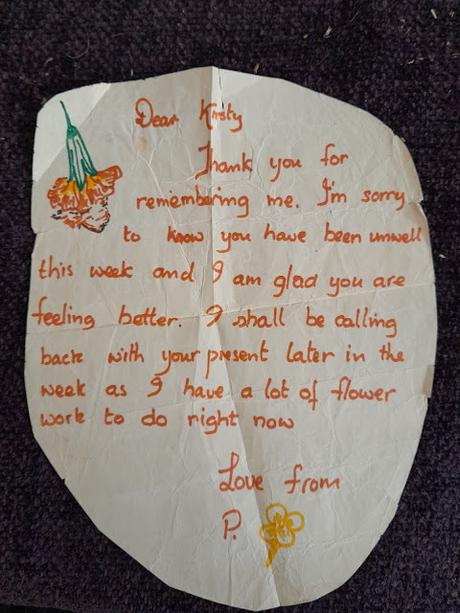 Dear Kirsty
Thank you for
remembering me. I'm sorry
to know you have been unwell
this week and I am glad you are
feeling better. I shall be calling
back with your present later in the
week as I have a lot of flower
work to do right now
Love from
P.